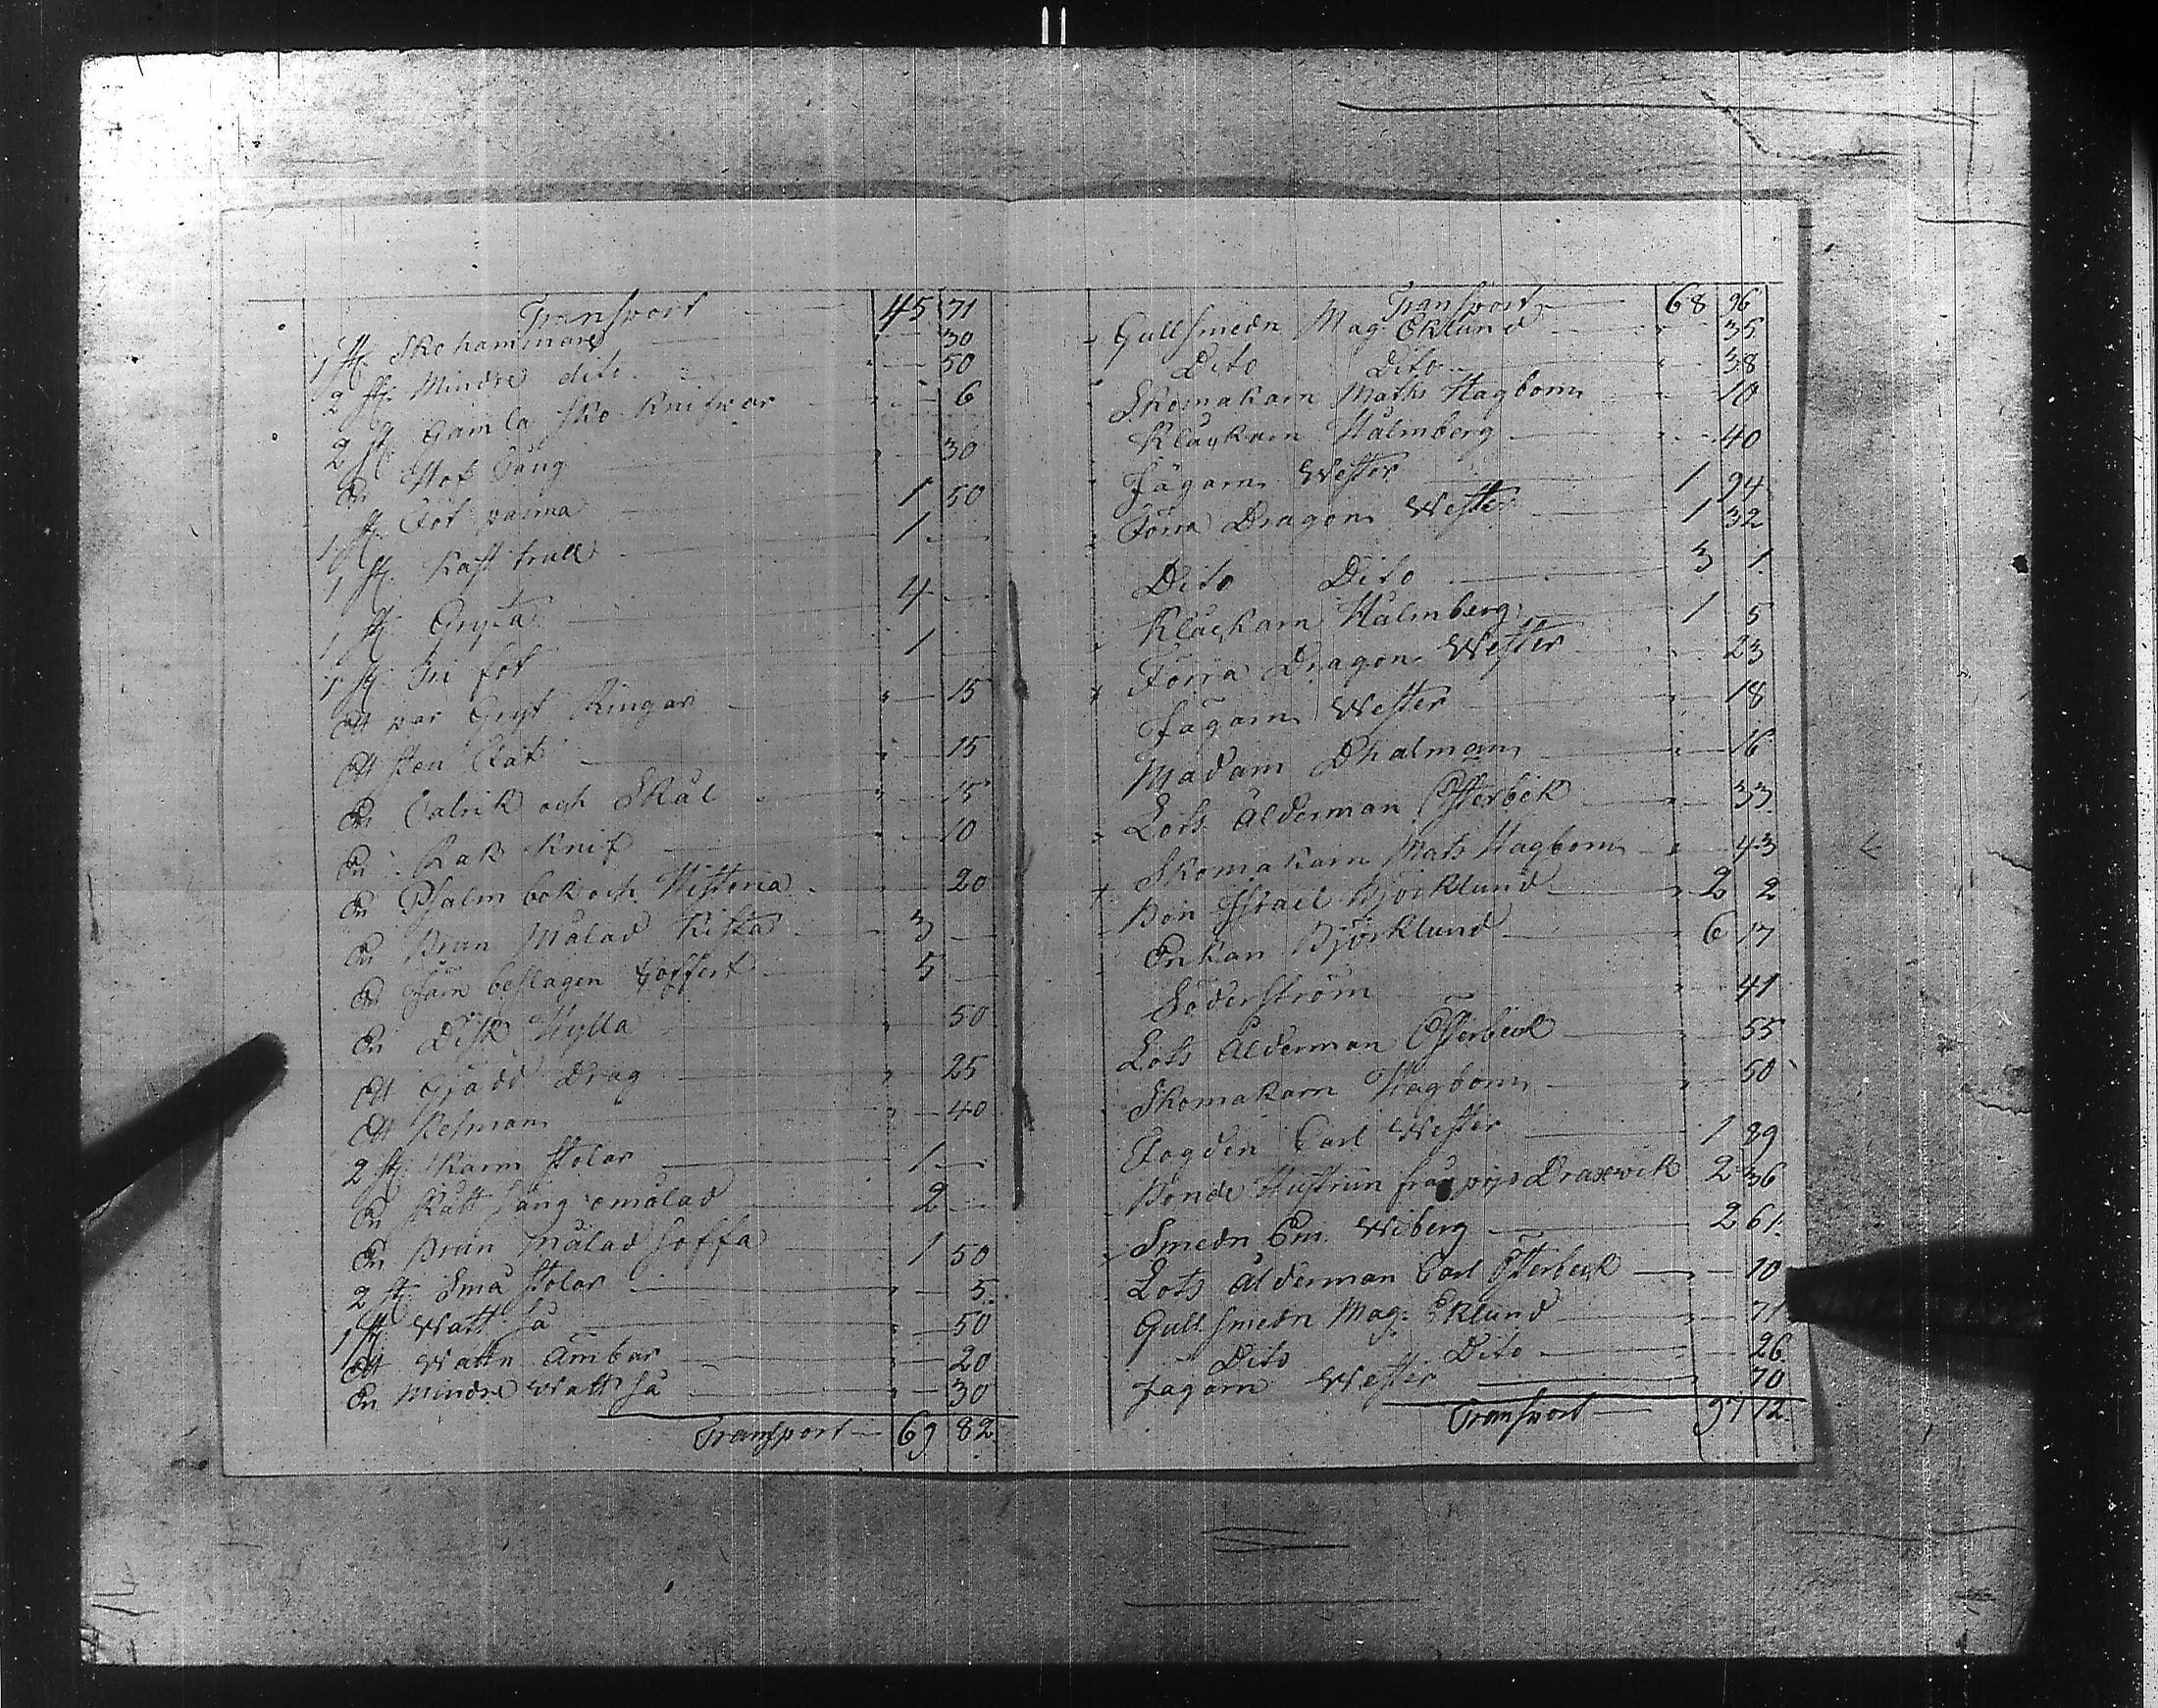 Transport 45 71
1 st. Skohammare 30
2 st. Mindre dito 50
2 st. Gamla Sko Knifwar 6
En Hof Tång 30
1 st. Fot panna 1 50
1 st. Kast trull 1
1 st. Gryta 4
1 st. Tri fot 1
Ett par Gryt Ringar 15
Ett sten Fat 15
En Talrik och Skål 15
En Rak Knif 10
En Psalm bok och Historia 20
En Brun Målad Kista 3
En Järn beslagen Koffert 5
En Disk Hylla 50
Ett Gjädd Drag 25
Ett Besman 40
2 st. Karm stolar 1
En Sätt säng omålad 2
En Brun Målad Soffa 1 50
2 st. Små stolar 5
1 st. Watt Så 50
Ett Wattn Ämbar 20
En Mindre Watt Så 30
Transport 69 82
Transport 68 96
Gullsmedn Mag Eklund 35
Dito Dito 38
Skomakarn Maths Hagbom 10
Klåckarn Halmberg 40
Jägarn Wester 1 94
Förra Dragon Wester 1 32
Dito Dito 3 1
Klåckarn Halmberg 1 5
Förra Dragon Wester 23
Jägarn Wester 18
Madam Dhalman 16
Lots Ålderman Österbek 33
Skomakarn Mats Hagbom 43
Bon Israel Björklund 2 2
Enkan Björklund 6 17
Söderström 41
Lots Ålderman Österbeck 55
Skomakarn Hagbom 50
Fogden Carl Wester 1 89
Bonde Hustrun från Draxwik 2 36
Smedn Em. Wiberg 2 61
Lots Ålderman Carl Österbeck 10
Gullsmedn Mag. Eklund 71
Dito Dito 26
Jagarn Wester 70
Transport 97 12